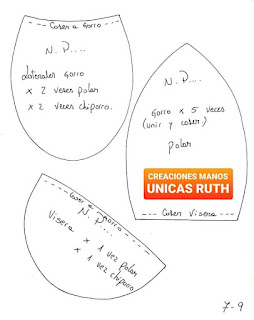 --- Coser a Gorro ---
N. P....
Laterales Gorro
x 2 veces polar
x 2 veces chiporro.
N. P....
Gorro x 5 veces
(unir y coser)
polar
CREACIONES MANOS
UNICAS RUTH
--- Coser Visera ---
Coser a Gorro
N. P....
Visera
x 1 vez polar
x 1 vez chiporro
7-9